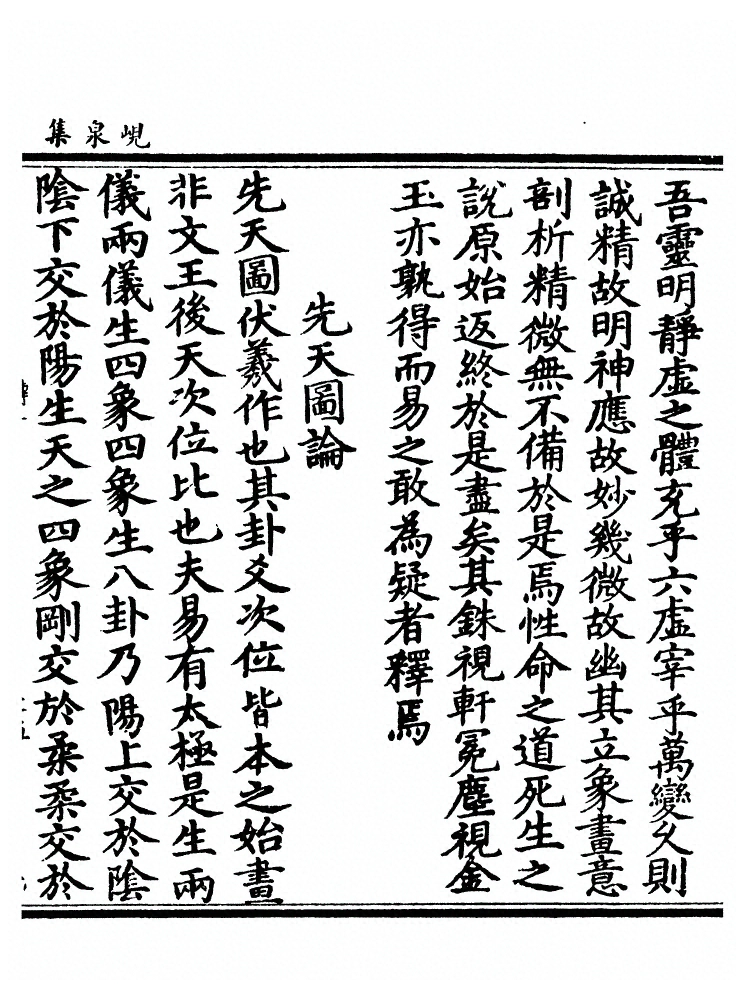 峴泉集
吾靈明靜虛之體充乎六虛宰乎萬變乆則
誠精故明神應故妙幾微故幽其立象畫意
剖析精微無不備於是焉性命之道死生之
説原始返終於是盡矣其銖視軒冕塵視金
玉亦孰得而易之敢為疑者釋焉
先天圖論
先天圖伏羲作也其卦爻次位皆本之始畫
非文王後天次位比也夫易有太極是生兩
儀兩儀生四象四象生八卦乃陽上交於陰
陰下交於陽生天之四象剛交於柔柔交於